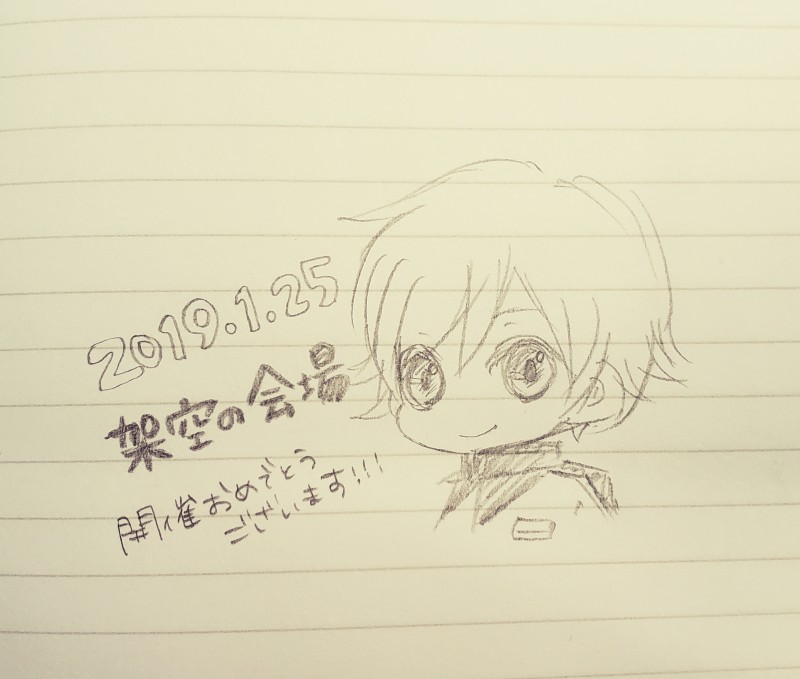 2019.1.25
架空の会場
開催おめでとう
ございます!!!